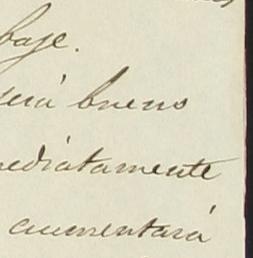 baje.
será bueno
mediatamente
aumentará